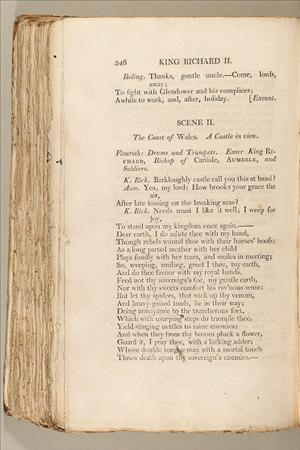 346 KING RICHARD II.
Boling. Thanks, gentle uncle.—Come, lords,
away;
To fight with Glendower and his complices;
Awhile to work, and, after, holiday. [Exeunt.
SCENE II.
The Coast of Wales. A Castle in view.
Flourish: Drums and Trumpets. Enter King Ri-
chard, Bishop of Carlisle, Aumerle, and
Soldiers.
K. Rich. Barkloughly castle call you this at hand?
Aum. Yea, my lord: How brooks your grace the
air,
After late tossing on the breaking seas?
K. Rich. Needs must I like it well; I weep for
joy,
To stand upon my kingdom once again.——
Dear earth, I do salute thee with my hand,
Though rebels wound thee with their horses' hoofs:
As a long parted mother with her child
Plays fondly with her tears, and smiles in meeting;
So, weeping, smiling, greet I thee, my earth,
And do thee favour with my royal hands.
Feed not thy sovereign's foe, my gentle earth,
Nor with thy sweets comfort his rav'nous sense:
But let thy spiders, that suck up thy venom,
And heavy-gaited toads, lie in their way;
Doing annoyance to the treacherous feet,
Which with usurping steps do trample thee.
Yield stinging nettles to mine enemies:
And when they from thy bosom pluck a flower,
Guard it, I pray thee, with a lurking adder;
Whose double tongue may with a mortal touch
Throw death upon thy sovereign's enemies.—